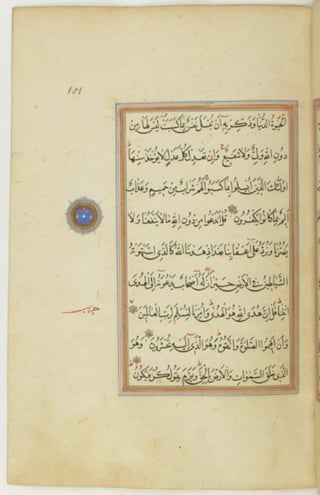 101
الْحَيٰوةُ الدُّنْيَا وَذَكِّرْ بِهِ اَنْ تُبْسَلَ نَفْسٌ بِمَا كَسَبَتْ لَيْسَ لَهَا مِنْ
دُونِ اللهِ وَلِيٌّ وَلَا شَفِيعٌ وَاِنْ تَعْدِلْ كُلَّ عَدْلٍ لَا يُؤْخَذْ مِنْهَا
اُولٰئِكَ الَّذِينَ اُبْسِلُوا بِمَا كَسَبُوا لَهُمْ شَرَابٌ مِنْ حَمِيمٍ وَعَذَابٌ
اَلِيمٌ بِمَا كَانُوا يَكْفُرُونَ قُلْ اَنَدْعُوا مِنْ دُونِ اللهِ مَا لَا يَنْفَعُنَا وَلَا
يَضُرُّنَا وَنُرَدُّ عَلٰى اَعْقَابِنَا بَعْدَ اِذْ هَدٰينَا اللهُ كَالَّذِي اسْتَهْوَتْهُ
الشَّيَاطِينُ فِي الْاَرْضِ حَيْرَانَ لَهُ اَصْحَابٌ يَدْعُونَهُ اِلَى الْهُدَى
ائْتِنَا قُلْ اِنَّ هُدَى اللهِ هُوَ الْهُدٰى وَاُمِرْنَا لِنُسْلِمَ لِرَبِّ الْعَالَمِينَ
حزب
وَاَنْ اَقِيمُوا الصَّلٰوةَ وَاتَّقُوهُ وَهُوَ الَّذِي اِلَيْهِ تُحْشَرُونَ وَهُوَ
الَّذِي خَلَقَ السَّمٰوَاتِ وَالْاَرْضَ بِالْحَقِّ وَيَوْمَ يَقُولُ كُنْ فَيَكُونُ